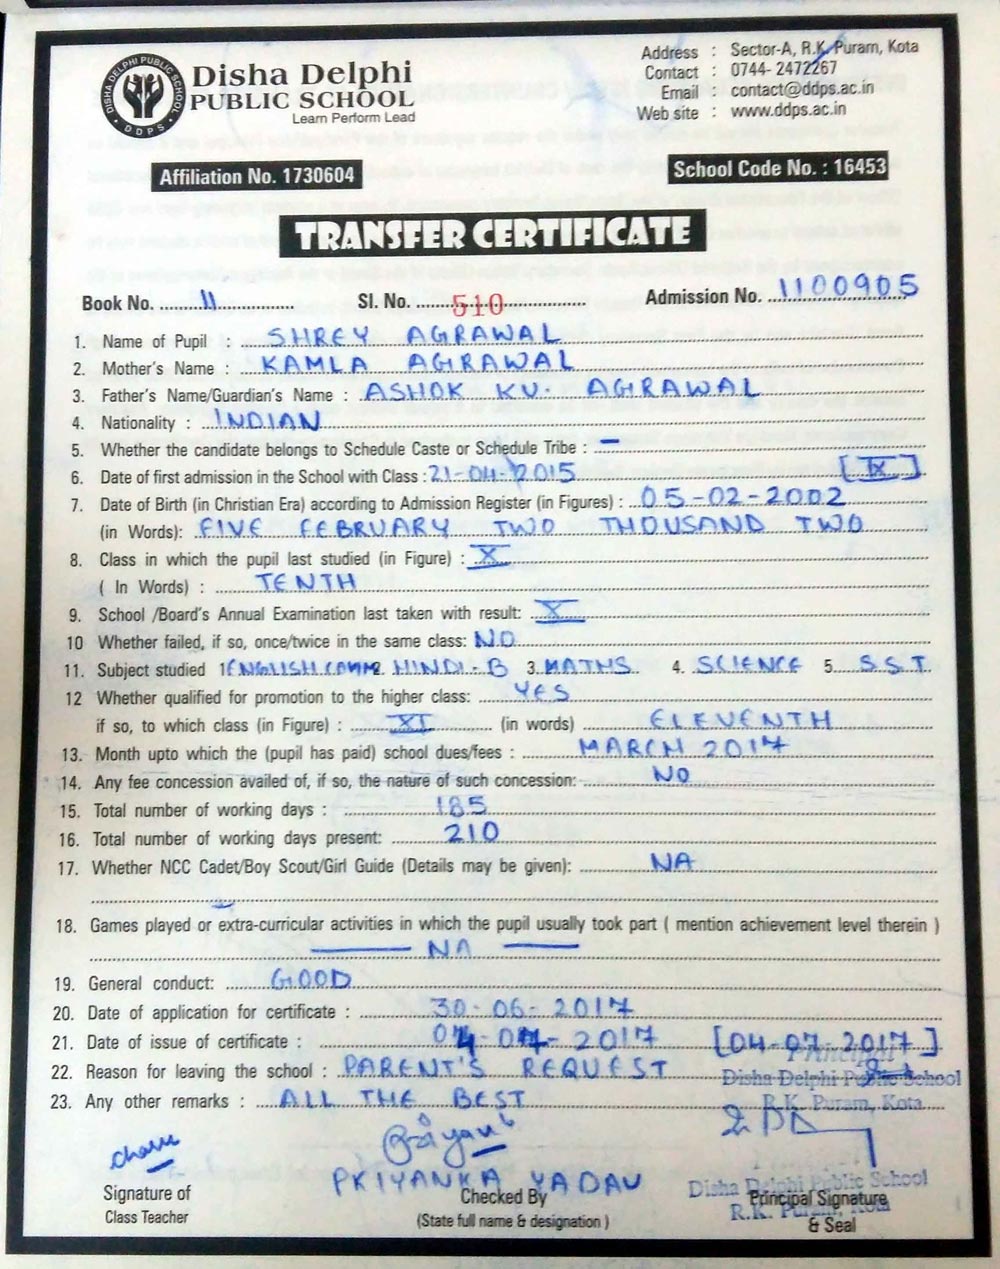 DISHA DELPHI PUBLIC SCHOOL
DDPS
Disha Delphi
PUBLIC SCHOOL
Learn Perform Lead
Address : Sector-A, R.K. Puram, Kota
Contact : 0744- 2472267
Email : contact@ddps.ac.in
Web site : www.ddps.ac.in
Affiliation No. 1730604
School Code No. : 16453
TRANSFER CERTIFICATE
Book No. 11 Sl. No. 510 Admission No. 1100905
1. Name of Pupil : SHREY AGRAWAL
2. Mother's Name : KAMLA AGRAWAL
3. Father's Name/Guardian's Name : ASHOK KU. AGRAWAL
4. Nationality : INDIAN
5. Whether the candidate belongs to Schedule Caste or Schedule Tribe : –
6. Date of first admission in the School with Class : 21-04-2015 [IX]
7. Date of Birth (in Christian Era) according to Admission Register (in Figures) : 05-02-2002
(in Words): FIVE FEBRUARY TWO THOUSAND TWO
8. Class in which the pupil last studied (in Figure) : X
( In Words) : TENTH
9. School /Board's Annual Examination last taken with result: X
10 Whether failed, if so, once/twice in the same class: NO
11. Subject studied 1 ENGLISH COMM 2. HINDI-B 3. MATHS 4. SCIENCE 5. S.S.T
12 Whether qualified for promotion to the higher class: YES
if so, to which class (in Figure) : XI (in words) ELEVENTH
13. Month upto which the (pupil has paid) school dues/fees : MARCH 2017
14. Any fee concession availed of, if so, the nature of such concession: NO
15. Total number of working days : 185
16. Total number of working days present: 210
17. Whether NCC Cadet/Boy Scout/Girl Guide (Details may be given): NA
18. Games played or extra-curricular activities in which the pupil usually took part ( mention achievement level therein )
— NA —
19. General conduct: GOOD
20. Date of application for certificate : 30-06-2017
21. Date of issue of certificate : 04-07-2017 [04-07-2017]
Principal
22. Reason for leaving the school : PARENT'S REQUEST
Disha Delphi Public School
R.K. Puram, Kota
23. Any other remarks : ALL THE BEST
PRIYANKA YADAV
Disha Delphi Public School
R.K. Puram, Kota
Signature of
Class Teacher
Checked By
(State full name & designation )
Principal Signature
& Seal